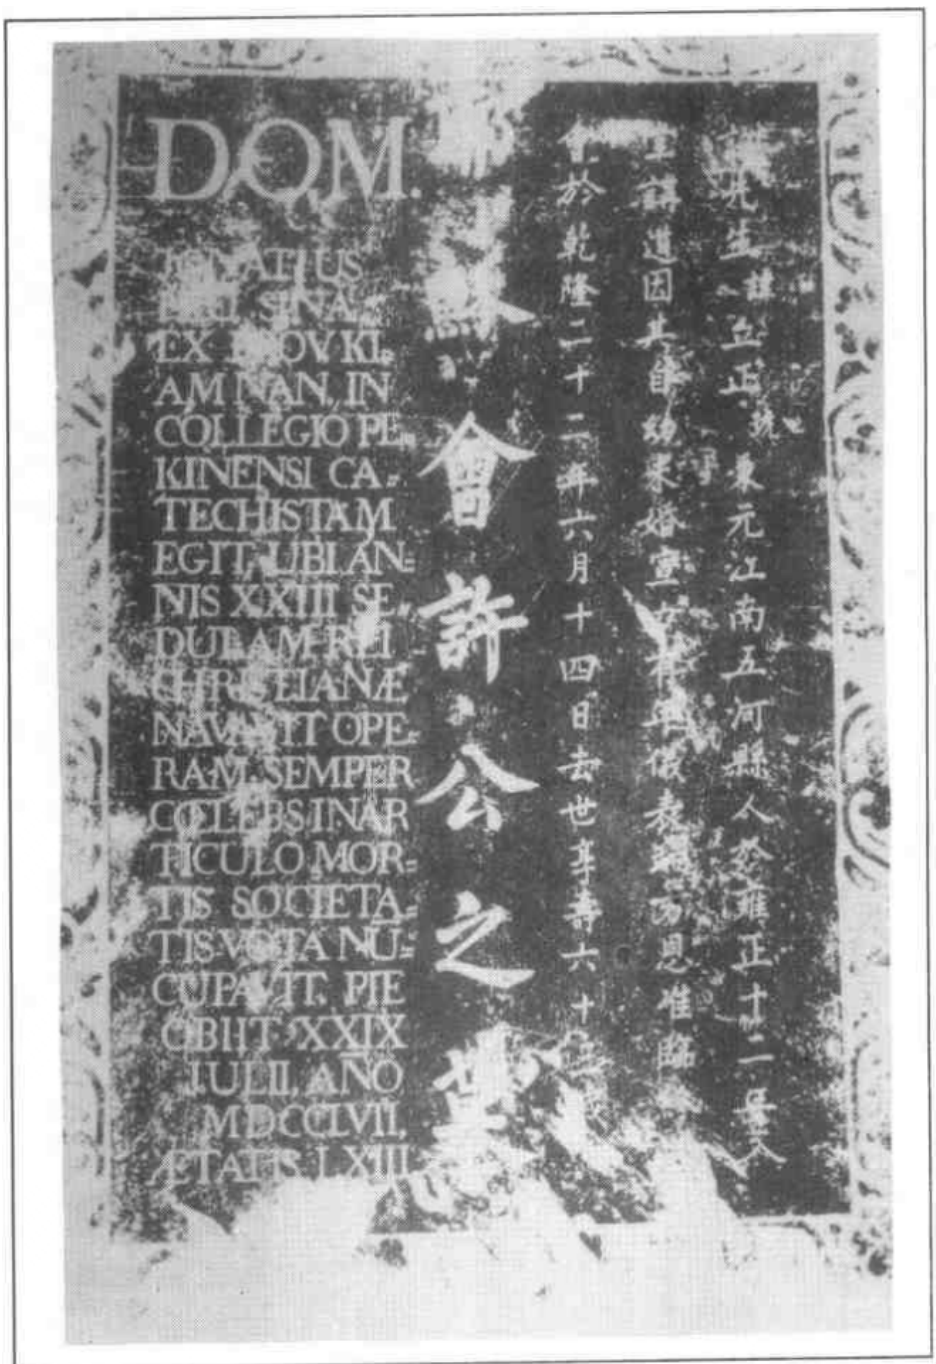 D.O.M.
SINA
EX KI=
AM NAN, IN
COLLEGIO PE=
KINENSI CA=
TECHISTAM
EGIT, UBI AN=
NIS XXIII SE=
DULAM REI
CHRISTIANÆ
NAVAVIT OPE=
RAM, SEMPER
COELEBS IN AR
TICULO MOR=
TIS SOCIETA=
TIS VOTA NU=
CUPAVIT. PIE
OBIIT XXIX
IULII, AÑO
MDCCLVII,
ÆTATIS LXIII
穌會許公之墓
許先生諱立正號秉元江南五河縣人於雍正十二年入
堂講道因其自幼未婚童女有年儀表 恩准臨
於乾隆二十二年六月十四日去世享壽六十三